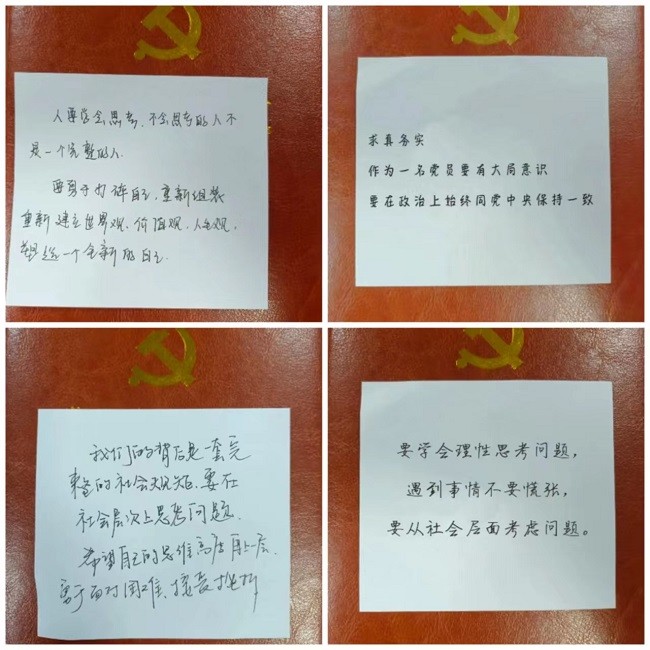 人要学会思考、不会思考的人不
是一个完整的人.
要勇于打碎自己,重新组装
重新建立世界观、价值观、人生观,
塑造一个全新的自己.
求真务实
作为一名党员要有大局意识
要在政治上始终同党中央保持一致
我们的背后是一套完
整的社会规矩.要在
社会层次上思考问题.
希望自己的思维高度再上一层.
勇于面对困难、接受挫折
要学会理性思考问题,
遇到事情不要慌张,
要从社会层面考虑问题。